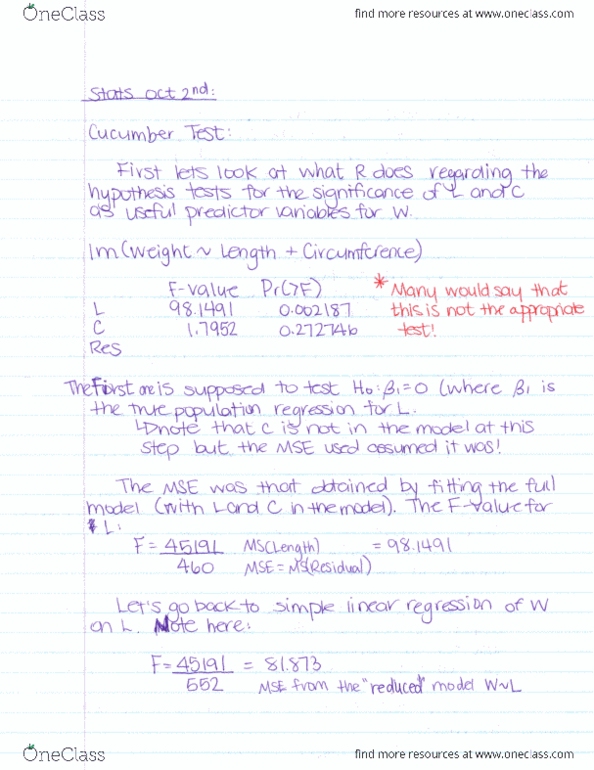 OneClass find more resources at www.oneclass.com
Stats oct 2nd:
Cucumber Test:
First lets look at what R does regarding the
hypothesis tests for the significance of L and C
as useful predictor variables for W.
lm(Weight ~ Length + Circumference)
F-value Pr(>F)
L 98.1491 0.002187
C 1.7952 0.272746
Res
* Many would say that
this is not the appropriate
test!
The First one is supposed to test H₀: β₁=0 (where β₁ is
the true population regression for L.
↳ note that C is not in the model at this
step but the MSE used assumed it was!
The MSE was that obtained by fitting the full
model (with L and C in the model). The F-value for
L:
F = 45191 MS(Length) = 98.1491
460 MSE = MS(Residual)
Let's go back to simple linear regression of W
on L. Note here:
F = 45191 = 81.873
552 MSE from the "reduced" model W~L
OneClass find more resources at www.oneclass.com